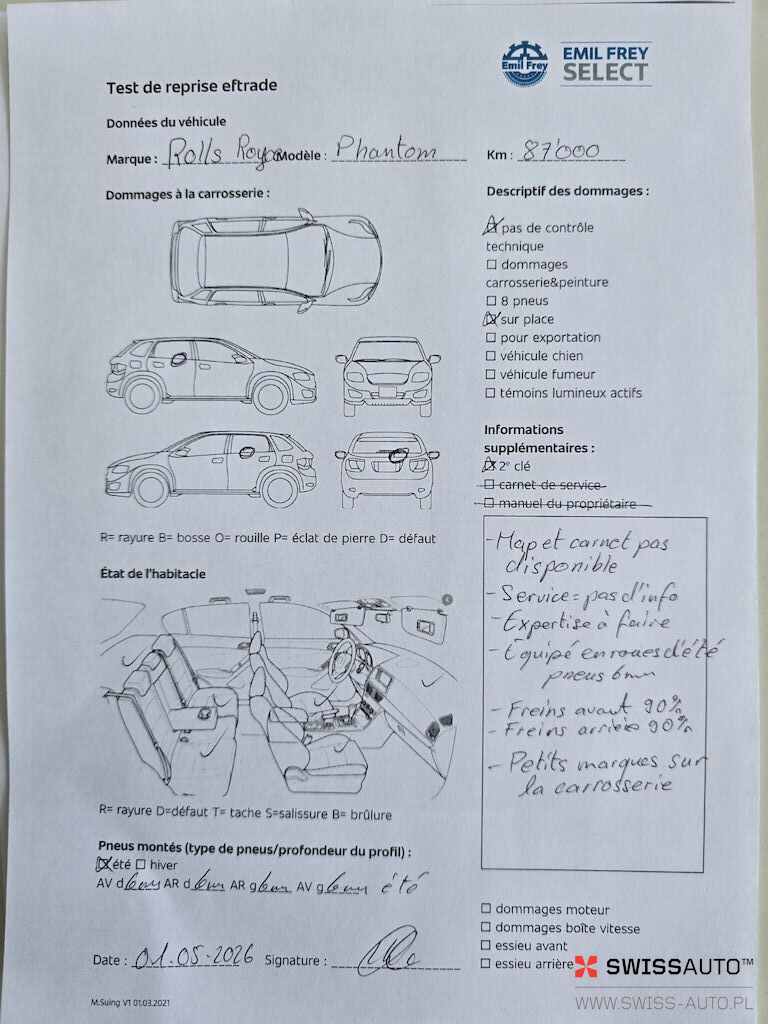 Emil Frey
EMIL FREY
SELECT
Test de reprise eftrade
Données du véhicule
Marque : Rolls Royce Modèle : Phantom Km : 87'000
Dommages à la carrosserie :
Descriptif des dommages :
☒ pas de contrôle
technique
☐ dommages
carrosserie&peinture
☐ 8 pneus
☒ sur place
☐ pour exportation
☐ véhicule chien
☐ véhicule fumeur
☐ témoins lumineux actifs
Informations
supplémentaires :
☒ 2e clé
☐ carnet de service
☐ manuel du propriétaire
R= rayure B= bosse O= rouille P= éclat de pierre D= défaut
- Map et carnet pas
disponible
- Service = pas d'info
- Expertise à faire
- Équipé en roues d'été
pneus 6mm
- Freins avant 90%
- Freins arrière 90%
- Petits marques sur
la carrosserie
État de l'habitacle
R= rayure D=défaut T= tache S=salissure B= brûlure
Pneus montés (type de pneus/profondeur du profil) :
☒ été ☐ hiver
AV d 6mm AR d 6mm AR g 6mm AV g 6mm été
☐ dommages moteur
☐ dommages boîte vitesse
☐ essieu avant
☐ essieu arrière
Date : 01.05.2026 Signature :
M.Suing V1 01.03.2021
SWISSAUTO™
WWW.SWISS-AUTO.PL